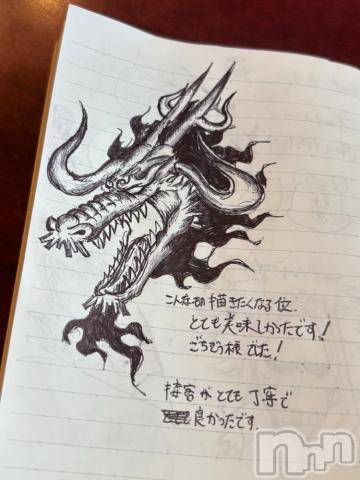 こんなもの描きたくなる位、
とても美味しかったです!
ごちそう様でした!
接客がとても丁寧で
良かったです。